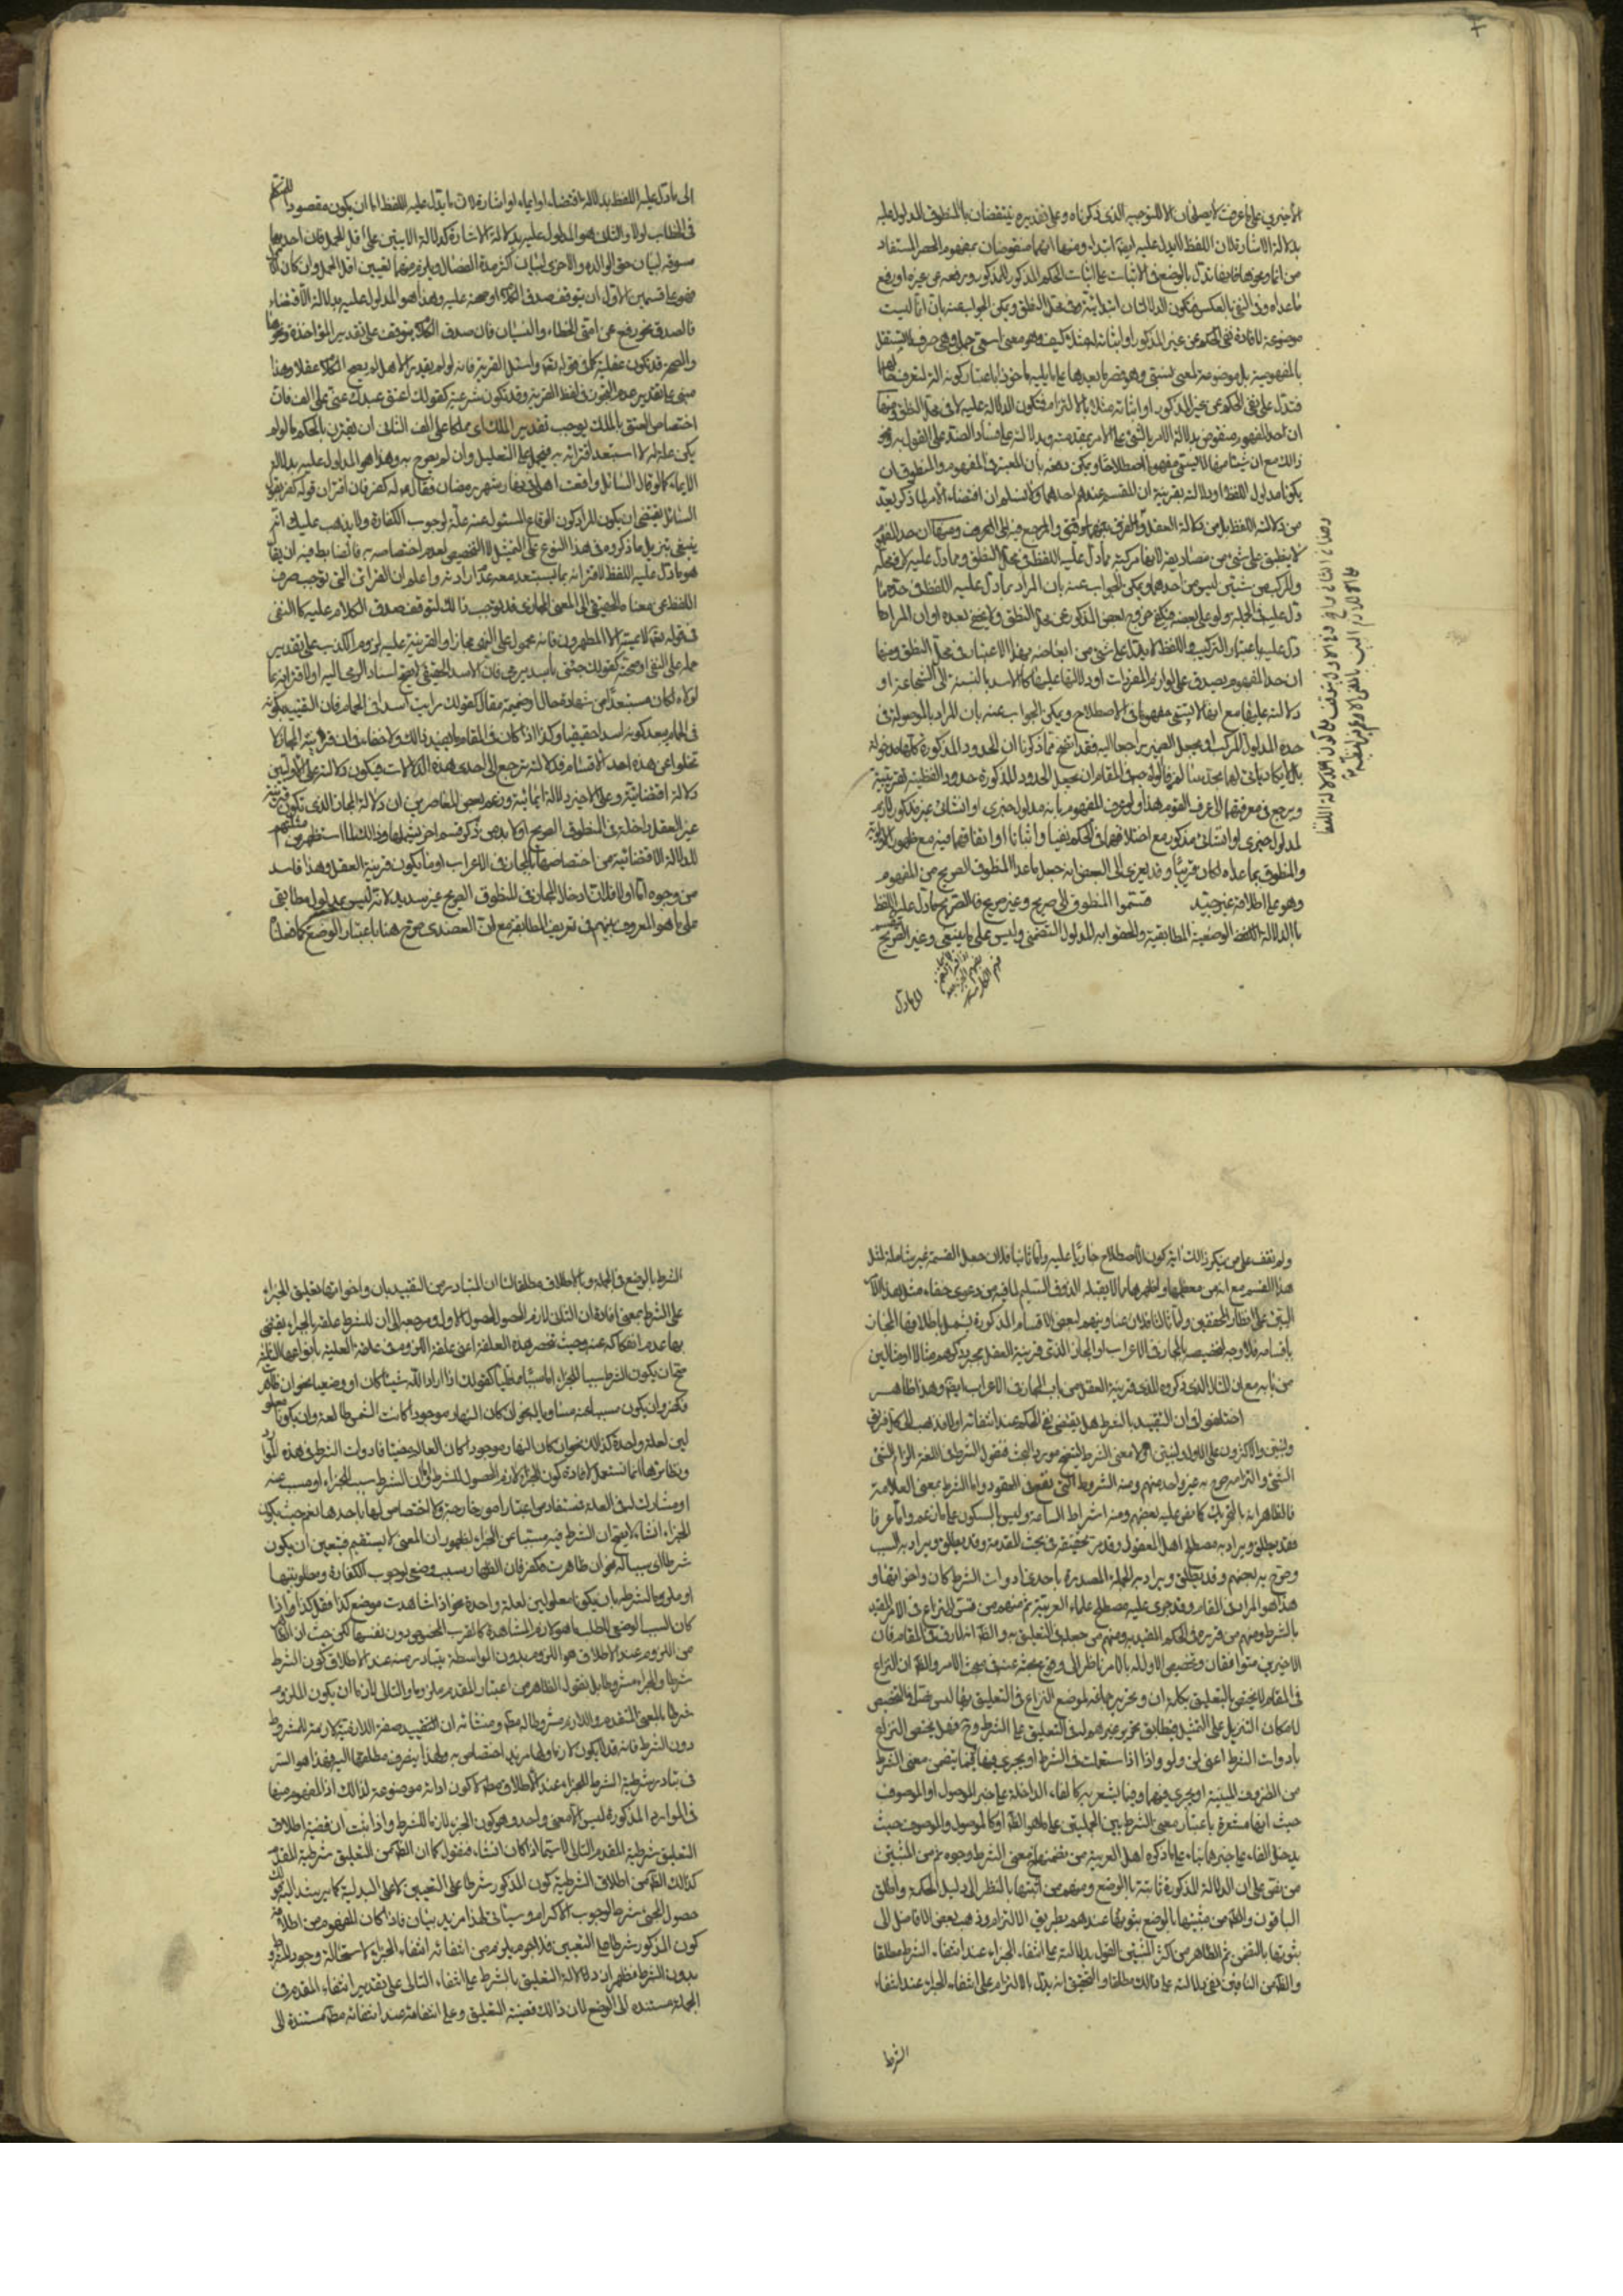 الأخيرين على ما عرفت لا يصلحان الا للتوجيه الذى ذكرناه وعلى تقديره ينتقضان بالمنطوق المدلول عليه
بدلالة الاشارة لان اللفظ لا يدل عليه ايضا ابتداء ومنها انهما منقوضان بمفهوم الحصر المستفاد
من انما ونحوها فانها تدل بالوضع فى الاثبات على اثبات الحكم المذكور للمذكور ورفعه عن غيره او رفع
ما عداه وفى النفى بالعكس فيكون الدلالتان ابتدائية وفى محل النطق ويمكن الجواب عنه بان انما ليست
موضوعة لافادة نفى الحكم عن غير المذكور او اثباته له مثلا كيف وهو معنى اسمى جملى وهى حرف لا يستقل
بالمفهومية بل موضوعة لمعنى نسبى وهو قصر ما بعدها على ما يليه ماخوذا باعتبار كونه الة لتعرف حالهما
فتدل على نفى الحكم عن غير المذكور او اثباته مثلا بالالتزام فتكون الدلالة عليه لا فى محل النطق ومنها
ان حد المفهوم منقوض بدلالة الامر بالشئ على الامر بمقدمته وبدلالته على فساد الضد على القول به ونحو
ذلك مع ان شيئا منها لا يسمى مفهوما اصطلاحا ويمكن دفعه بأن المعتبر فى المفهوم والمنطوق ان
يكونا مدلول اللفظ او دلالته بقرينة ان المقسم عندهم احدهما ولا نسلم ان اقتضاء الأمر لما ذكر يعد
من دلالة اللفظ بل من دلالة العقل والفرق بينهما ذوقى والمرجع فيه الى العرف ومنها ان حد المفهوم
لا ينطبق على شئ من مصاديقه لانها مركبة مما دل عليه اللفظ فى محل النطق ومما دل عليه لا فى محله
والمركب من شيئين ليس من احدهما ويمكن الجواب عنه بان المراد بما دل عليه اللفظ فى حده ما
دل عليه فى الجملة ولو على بعضه فيكفى خروج بعض المذكور عن محل النطق ولا يخفى بعده او ان المراد ما
دل عليه باعتبار التركيب واللفظ لا يدل على شئ من ابعاضه بهذا الاعتبار فى محل النطق ومنها
ان حد المفهوم يصدق على لوازم المفردات او دلالتها عليها كالاسد بالنسبة الى الشجاعة او
دلالته عليها مع انها لا يسمى مفهوما فى الاصطلاح ويمكن الجواب عنه بان المراد بالموصولة فى
حده المدلول المركب او بجعل الضمير راجعا اليه فقد اتضح مما ذكرنا ان الحدود المذكورة كلها مدخولة
بل لا يكاد ياتى لهما بحد سالم فالوجه صرف المقام ان يجعل الحدود المذكورة حدودا لفظية تقريبية
ويرجع فى معرفتهما الى عرف القوم هذا ولو عرف المفهوم بانه مدلول خبرى او انشائى غير مذكور لازم
لمدلول خبرى او انشائى مذكور مع اختلافهما فى الحكم نفيا واثباتا او اتفاقهما فيه مع ظهور الاولوية
والمنطوق بما عداه لكان قريبا وقد يعزى الى البعض انه جعل ما عدا المنطوق الصريح من المفهوم
وهو على اطلاقه غير جيد قسموا المنطوق الى صريح وغير صريح فالصريح ما دل عليه اللفظ
بالدلالة الوضعية المطابقية والحقوا به المدلول التضمنى وليس على ما ينبغى وغير الصريح
الى ما دل
الى ما دل عليه اللفظ بدلالة اقتضاء او ايماء او اشارة لان ما يدل عليه اللفظ اما ان يكون مقصودا للمتكلم
فى الخطاب اولا والثانى هو المدلول عليه بدلالة الاشارة كدلالة الايتين على اقل الحمل فان احديهما
مسوقة لبيان حق الوالدة والاخرى لبيان اكثر مدة الفصال ويلزم منهما تعيين اقل الحمل وان كان الأول
فهو على قسمين الاول ان يتوقف صدق الكلام او صحته عليه وهذا هو المدلول عليه بدلالة الاقتضاء
فالصدق نحو رفع عن امتى الخطاء والنسيان فان صدق الكلام يتوقف على تقدير المؤاخذة ونحوها
والصحة قد تكون عقلية كما فى قوله تعالى واسئل القرية فانه لو لم يقدر الاهل لم يصح الكلام عقلا وهذا
مبنى على تقدير عدم التجوز فى لفظ القرية وقد تكون شرعية كقولك اعتق عبدك عنى على الف فان
اختصاص العتق بالملك يوجب تقدير الملك اى مملكا على الف الثانى ان يقترن بالحكم ما لو لم
يكن علة له لاستبعد اقترانه به فيحمل على التعليل وان لم يصرح به وهذا هو المدلول عليه بدلالة
الايماء كما لو قال السائل واقعت اهلى فى نهار شهر رمضان فقال له كفر فان اقتران قوله كفر بقول
السائل يقتضى ان يكون المراد كون الوقاع المسئول عنه علة لوجوب الكفارة ولا يذهب عليك انه
ينبغى تنزيل ما ذكروه فى هذا النوع على التمثيل لا التخصيص لعدم اختصاصه به فالضابط فيه ان يقال
هو ما دل عليه اللفظ لاقترانه بما يستبعد معه عدم ارادته واعلم ان القرائن التى توجب صرف
اللفظ عن معناه الحقيقى الى المعنى المجازى قد توجب ذلك لتوقف صدق الكلام عليه كالنفى
فى قوله تعالى لا يمسه الا المطهرون فانه محمول على النهى مجازا والقرينة عليه لزوم الكذب على تقدير
حمله على النفى او صحته كقولك جئنى بأسد يرمى فان الاسد الحقيقى لا يصح اسناد الرمى اليه او لاقترانه بما
لولاه لكان مستبعدا من شهادة حال او ضميمة مقال كقولك رايت اسدا فى الحمام فان التقييد بكونه
فى الحمام يبعد كونه اسدا حقيقيا وكذا اذا كان فى المقام ما يفيد ذلك ولا خفاء فى ان قرينة المجاز لا
تخلوا عن هذه احد الاقسام فدلالته ترجع الى احدى هذه الدلالات فيكون دلالته على الاولين
دلالة اقتضائية وعلى الاخير دلالة ايمائية وزعم بعض المعاصرين ان دلالة المجاز الذى تكون قرينته
غير العقل داخلة فى المنطوق الصريح او لا بد من ذكر قسم اخر يشملها وذلك لما استظهر من تمثيلهم
للدلالة الاقتضائية من اختصاصها بالمجاز فى الاعراب او ما يكون قرينة العقل وهذا فاسد
من وجوه اما اولا فلان ادخال المجاز فى المنطوق الصريح غير سديد لانه ليس بمدلول مطابقى
على ما هو المعروف بينهم فى تعريف المطابقة مع ان العضدى صرح هنا باعتبار الوضع كما فعلنا
ولم نقف على من ينكر ذلك ايثر كون الاصطلاح جاريا عليه واما ثانيا فلان جعل القسمة غير شاملة لمثل
هذا القسم مع انه من معظمها واظهرها مما لا يقبله الذوق السليم لما فيه من دعوى خفاء مثل هذا الامر
البين على انظار المحققين واما ثالثا فلان عناوينهم لبعض الاقسام المذكورة يشمل باطلاقها المجاز
باقسامه فلا وجه لتخصيصه بالمجاز فى الاعراب او المجاز الذى قرينته العقل بمجرد ذكرهم مثالا او مثالين
من بابه مع ان المثال الذى ذكروه للذى قرينته العقل من باب المجاز فى الاعراب ايضا وهذا ظاهر
اختلفوا فى ان التقييد بالشرط هل يقتضى نفى الحكم عند انتفائه اولا فذهب الى كل فريق
والاكثرون على الاول ولنبين اولا معنى الشرط ليتضح مورد البحث فنقول الشرط فى اللغة الزام الشئ
الشئ والتزامه صرح به غير واحد منهم ومنه الشروط التى تقع فى العقود واما الشرط بمعنى العلامة
فالظاهر انه بالتحريك كما نص عليه بعضهم ومنه اشراط الساعة وليس بالسكون على ما زعم واما عرفا
فقد يطلق ويراد به مصطلح اهل المعقول وقد مر تحقيقه فى بحث المقدمة وقد يطلق ويراد به السبب
وصرح به بعضهم وقد يطلق ويراد به الجملة المصدرة باحدى ادوات الشرط كان واخواتها و
هذا هو المراد فى المقام وقد جرى عليه مصطلح علماء العربية ثم منهم من فسر النزاع فى الامر المقيد
بالشرط ومنهم من قرره فى الحكم المقيد به ومنهم من جعله فى التعليق به والظاهر انه لا فرق فى المقام فان
الاخيرين متوافقان وتخصيص الاول له بالامر ناظر الى وقوع بحثه عنه فى مبحث الامر والظاهر ان النزاع
فى المقام لا يختص بالتعليق بكلمة ان وتحرير جماعة لموضع النزاع فى التعليق بها ليس فصلا للتخصيص
لامكان التنزيل على التمثيل فيطابق تحرير غيرهم له فى التعليق على الشرط وح فهل يختص النزاع
بادوات الشرط اعنى ان ولو واذا اذا استعملت فى الشرط او يجرى فيها وفيما يتضمن معنى الشرط
من الظروف المبنية او يجرى فيهما وفيما يشعر به كالفاء الداخلة على خبر الموصول او الموصوف
حيث انها مشعرة باعتبار معنى الشرط بين الجملتين على ما هو الظاهر او كالموصول والموصوف حيث
يدخل الفاء على خبرها بناء على ما ذكره اهل العربية من تضمنهما معنى الشرط وجوه ثم من المثبتين
من نص على ان الدلالة المذكورة ثابتة بالوضع ومنهم من اثبتها بالنظر الى دليل الحكمة واطلق
الباقون والظاهر من مثبتيها بالوضع ثبوتها عندهم بطريق الالتزام وذهب بعض الافاضل الى
ثبوتها بالتضمن ثم الظاهر من اكثر المثبتين القول بدلالته على انتفاء الجزاء عند انتفاء الشرط مطلقا
والظاهر من النافين نفى دلالته على ذلك مطلقا والتحقيق انه يدل بالالتزام على انتفاء الجزاء عند انتفاء
الشرط
الشرط بالوضع فى الجملة وبالاطلاق مطلقا لنا ان المتبادر من التقييد بان واخواتها تعليق الجزاء
على الشرط بمعنى افادة ان الثانى لازم الحصول لحصول الاول ومرجعه الى ان للشرط علقة بالجزاء يقتضى
بها عدم انفكاكه عنه وحيث تنحصر هذه العلقة اعنى علقة اللزوم فى علقة العلية بأنواعها الثلثة
صح ان يكون الشرط سببا للجزاء اما سببا عقليا كقولك اذا اراد الله شيئا كان او وضعيا نحو ان ظاهرت
فكفر وان يكون مسببا عنه مساويا نحو ان كان النهار موجودا كانت الشمس طالعة وان يكونا معلو
لين لعلة واحدة كذلك نحو ان كان النهار موجودا كان العالم مضيئا فادوات الشرط فى هذه الموارد
ونظائرها انما تستعمل لافادة كون الجزاء لازم الحصول للشرط واما ان الشرط سبب للجزاء او مسبب عنه
او مشارك له فى العلة فمستفاد من اعتبار امور خارجة ولا اختصاص لها باحدها نعم حيث يكون
الجزاء انشاء لا يصح ان الشرط فيه مسببا عن الجزاء لظهور ان المعنى لا يستقيم فيتعين ان يكون
شرطا اى سببا له نحو ان ظاهرت فكفر فان الظهار سبب وضعى لوجوب الكفارة ومطلوبيتها
او ملزوما للشرط بان يكونا معلولين لعلة واحدة نحو اذا شاهدت موضع كذا فقل كذا واذا
كان السبب الوضعى للطلب ما هو لازم المشاهدة كالقرب المخصوص دون نفسها لكن حيث ان الظاهر
من اللزوم عند الاطلاق هو اللزوم بدون الواسطة يتبادر منه عند الاطلاق كون الشرط
شرطا والجزاء مشروطا بل نقول الظاهر من اعتبار المقدم ملزوما والتالى لازما ان يكون الملزوم
شرطا بالمعنى المتقدم واللازم مشروطا له مطلقا ومنشائه ان التقييد صفة اللازمية لازمة للمشروط
دون الشرط فانه قد لا يكون لازما ولها مزيد اختصاص به ولهذا ينصرف مطلقها اليه وهذا هو السر
فى تبادر شرطية الشرط للجزاء عند الاطلاق مطلقا لا كون اداته موضوعة لذلك اذ المفهوم منها
فى الموارد المذكورة ليس الا معنى واحد وهو كون الجزاء لازما للشرط واذا ثبت ان قضية اطلاق
التعليق شرطية المقدم للتالى لا سيما اذا كان انشاء فنقول كما ان الظاهر من التعليق شرطية المقدم
كذلك الظاهر من اطلاق الشرطية كون المذكور شرطا على التعيين لا على البدلية كما يرشد اليه قولك
حصول المجئ شرط لوجوب الاكرام وسيأتى لهذا مزيد بيان فاذا كان المفهوم من اطلاقه
كون المذكور شرطا على التعيين فلا جرم يلزم من انتفائه انتفاء الجزاء لاستحالة وجود المشروط
بدون الشرط فظهر ان دلالة التعليق بالشرط على انتفاء التالى على تقدير انتفاء المقدم فى
الجملة مستندة الى الوضع لان ذلك قضية التعليق وعلى انتفائه عند انتفائه مطلقا مستندة الى